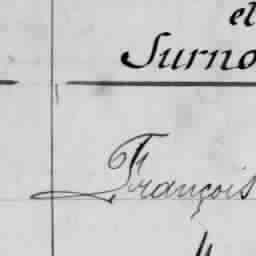 et
Surno
François